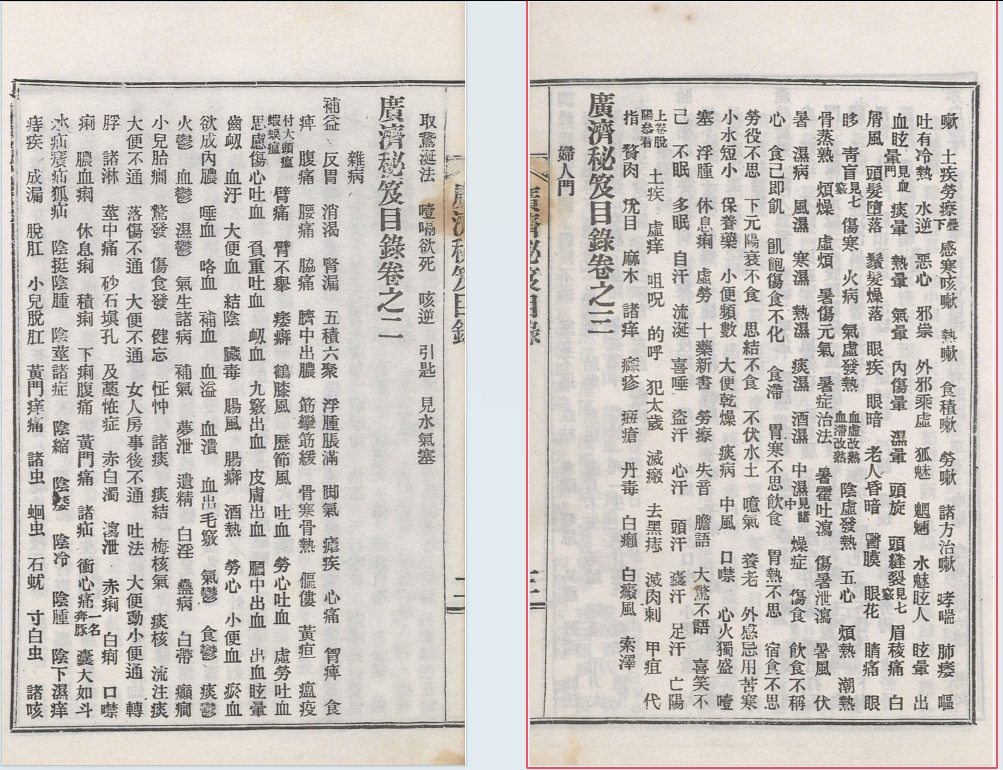 取驚涎法 噎嗝欲死 咳逆 引匙 見水氣塞
廣濟秘笈目錄卷之二
雜病
補益 反胃 消渴 腎漏 五積六聚 浮腫脹滿 脚氣 瘧疾 心痛 胃痺 食
痺 腹痛 腰痛 脇痛 臍中出膿 筋攣筋緩 骨寒骨熱 傴僂 黃疸 瘟疫
付大頭瘟蝦蟆瘟 臂痛 臂不擧 痿癖 鶴膝風 歷節風 吐血 勞心吐血 虛勞吐血
思慮傷心吐血 負重吐血 衂血 九竅出血 皮膚出血 膕中出血 出血眩暈
齒衂 血汗 大便血 結陰 臟毒 腸風 腸癖 酒熱 勞心 小便血 瘀血
欲成內膿 唾血 咯血 補血 血溢 血潰 血出毛竅 氣鬱 食鬱 痰鬱
火鬱 血鬱 濕鬱 氣生諸病 補氣 夢泄 遺精 白淫 蠱病 白帶 癲癎
小兒胎癎 驚發 傷食發 健忘 怔忡 諸痰 痰結 梅核氣 痰核 流注痰
大便不通 落傷不通 大便不通 女人房事後不通 吐法 大便動小便通 轉
脬 諸淋 莖中痛 砂石塡孔 及藥恠症 赤白濁 瀉泄 赤痢 白痢 口噤
痢 膿血痢 休息痢 積痢 下痢腹痛 黃門痛 諸疝 衝心痛一名奔豚 囊大如斗
水疝㿉疝狐疝 陰挺陰腫 陰莖諸症 陰縮 陰痿 陰冷 陰腫 陰下濕痒
痔疾 成漏 脫肛 小兒脫肛 黃門痒痛 諸虫 蛔虫 石蚘 寸白虫 諸咳
廣濟秘笈目錄
二
嗽 土疾勞瘵下疊 感寒咳嗽 熱嗽 食積嗽 勞嗽 諸方治嗽 哮喘 肺痿 嘔
吐有冷熱 水逆 惡心 邪祟 外邪乘虛 狐魅 魍魎 水魅眩人 眩暈 出
血眩暈見血暈門 痰暈 熱暈 氣暈 內傷暈 濕暈 頭旋 頭縫裂見七竅 眉稜痛 白
屑風 頭髮墮落 鬚髮燥落 眼疾 眼暗 老人昏暗 瞖膜 眼花 睛痛 眼
眵 靑盲見七竅 傷寒 火病 氣虛發熱 血虛改熱血滯改熱 陰虛發熱 五心 煩熱 潮熱
骨蒸熱 煩燥 虛煩 暑傷元氣 暑症治法 暑霍吐瀉 傷暑泄瀉 暑風 伏
暑 濕病 風濕 寒濕 熱濕 痰濕 酒濕 中濕見諸中 燥症 傷食 飮食不稱
心 食已卽飢 飢飽傷食不化 食滯 胃寒不思飮食 胃熱不思 宿食不思
勞役不思 下元陽衰不食 思結不食 不伏水土 噫氣 養老 外感忌用苦寒
小水短小 保養藥 小便頻數 大便乾燥 痰病 中風 口噤 心火獨盛 噎
塞 浮腫 休息痢 虛勞 十藥新書 勞瘵 失音 膽語 大驚不語 喜笑不
已 不眠 多眠 自汗 流涎 喜唾 盜汗 心汗 頭汗 囊汗 足汗 亡陽
上卷脫陽叅看 土疾 虛痒 咀呪 的呼 犯太歲 滅瘢 去黑痣 滅肉刺 甲疽 代
指 贅肉 疣目 麻木 諸痒 癮疹 癍瘡 丹毒 白癜 白癜風 索澤
廣濟秘笈目錄卷之三
婦人門
廣濟秘笈目錄
三